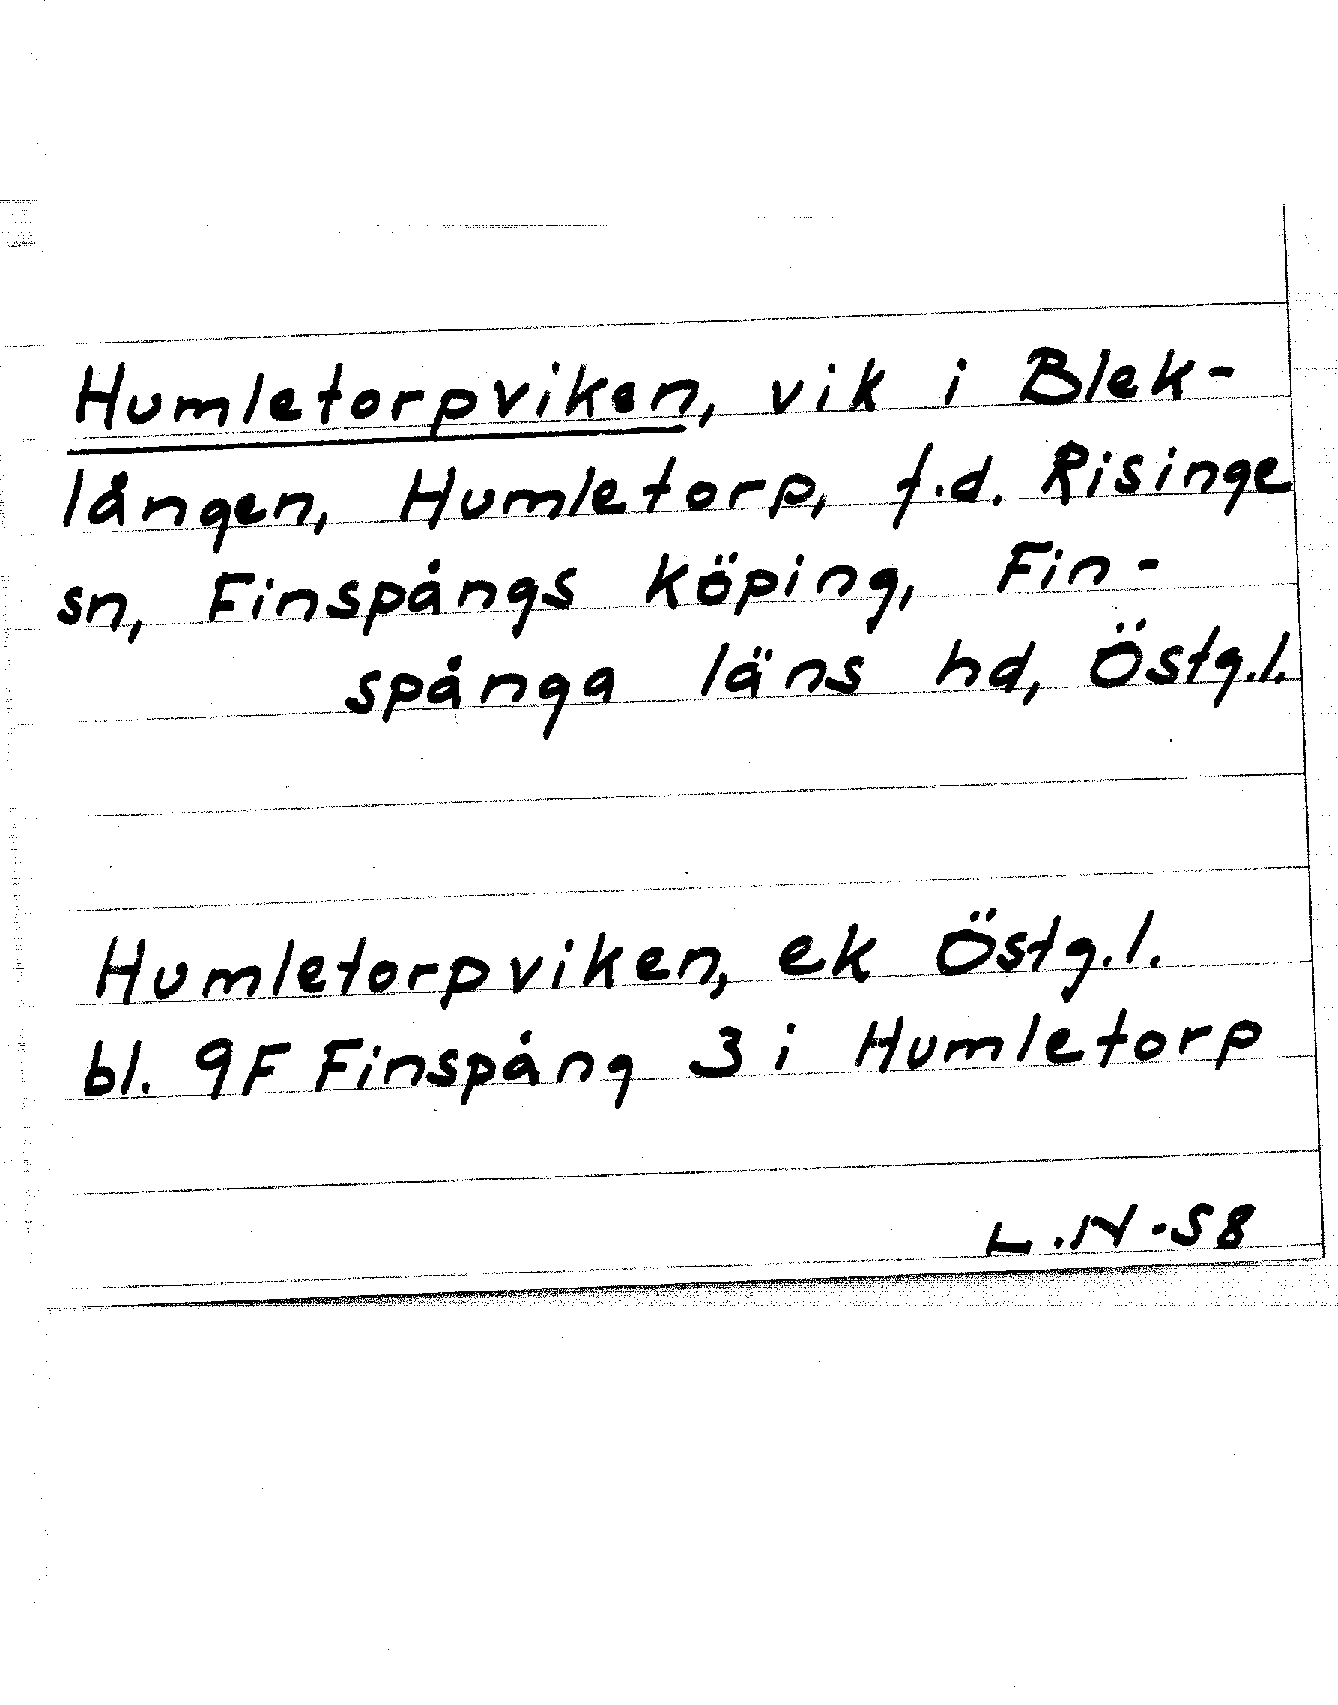 Humletorpviken, vik i Blek-
lången, Humletorp, f.d. Risinge
sn, Finspångs köping, Fin-
spånga läns hd, Östg.l.
Humletorpviken, ek Östg.l.
bl. 9F Finspång 3 i Humletorp
L.N-58